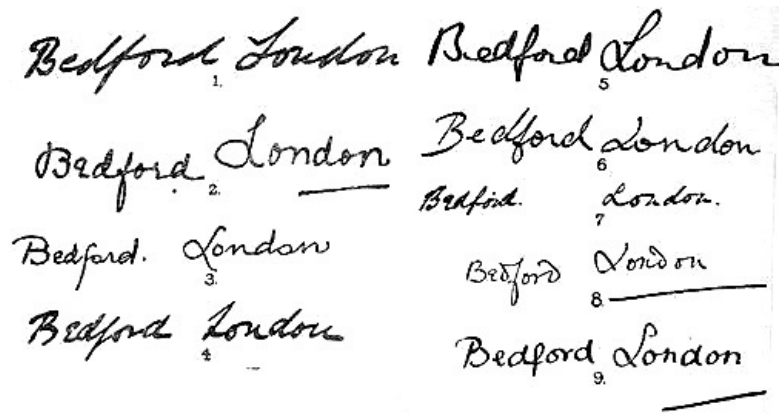 Bedford London
1.
Bedford London
2.
Bedford. London
3.
Bedford London
4
Bedford London
5
Bedford London
6
Bedford. London.
7
Bedford London
8.
Bedford London
9.